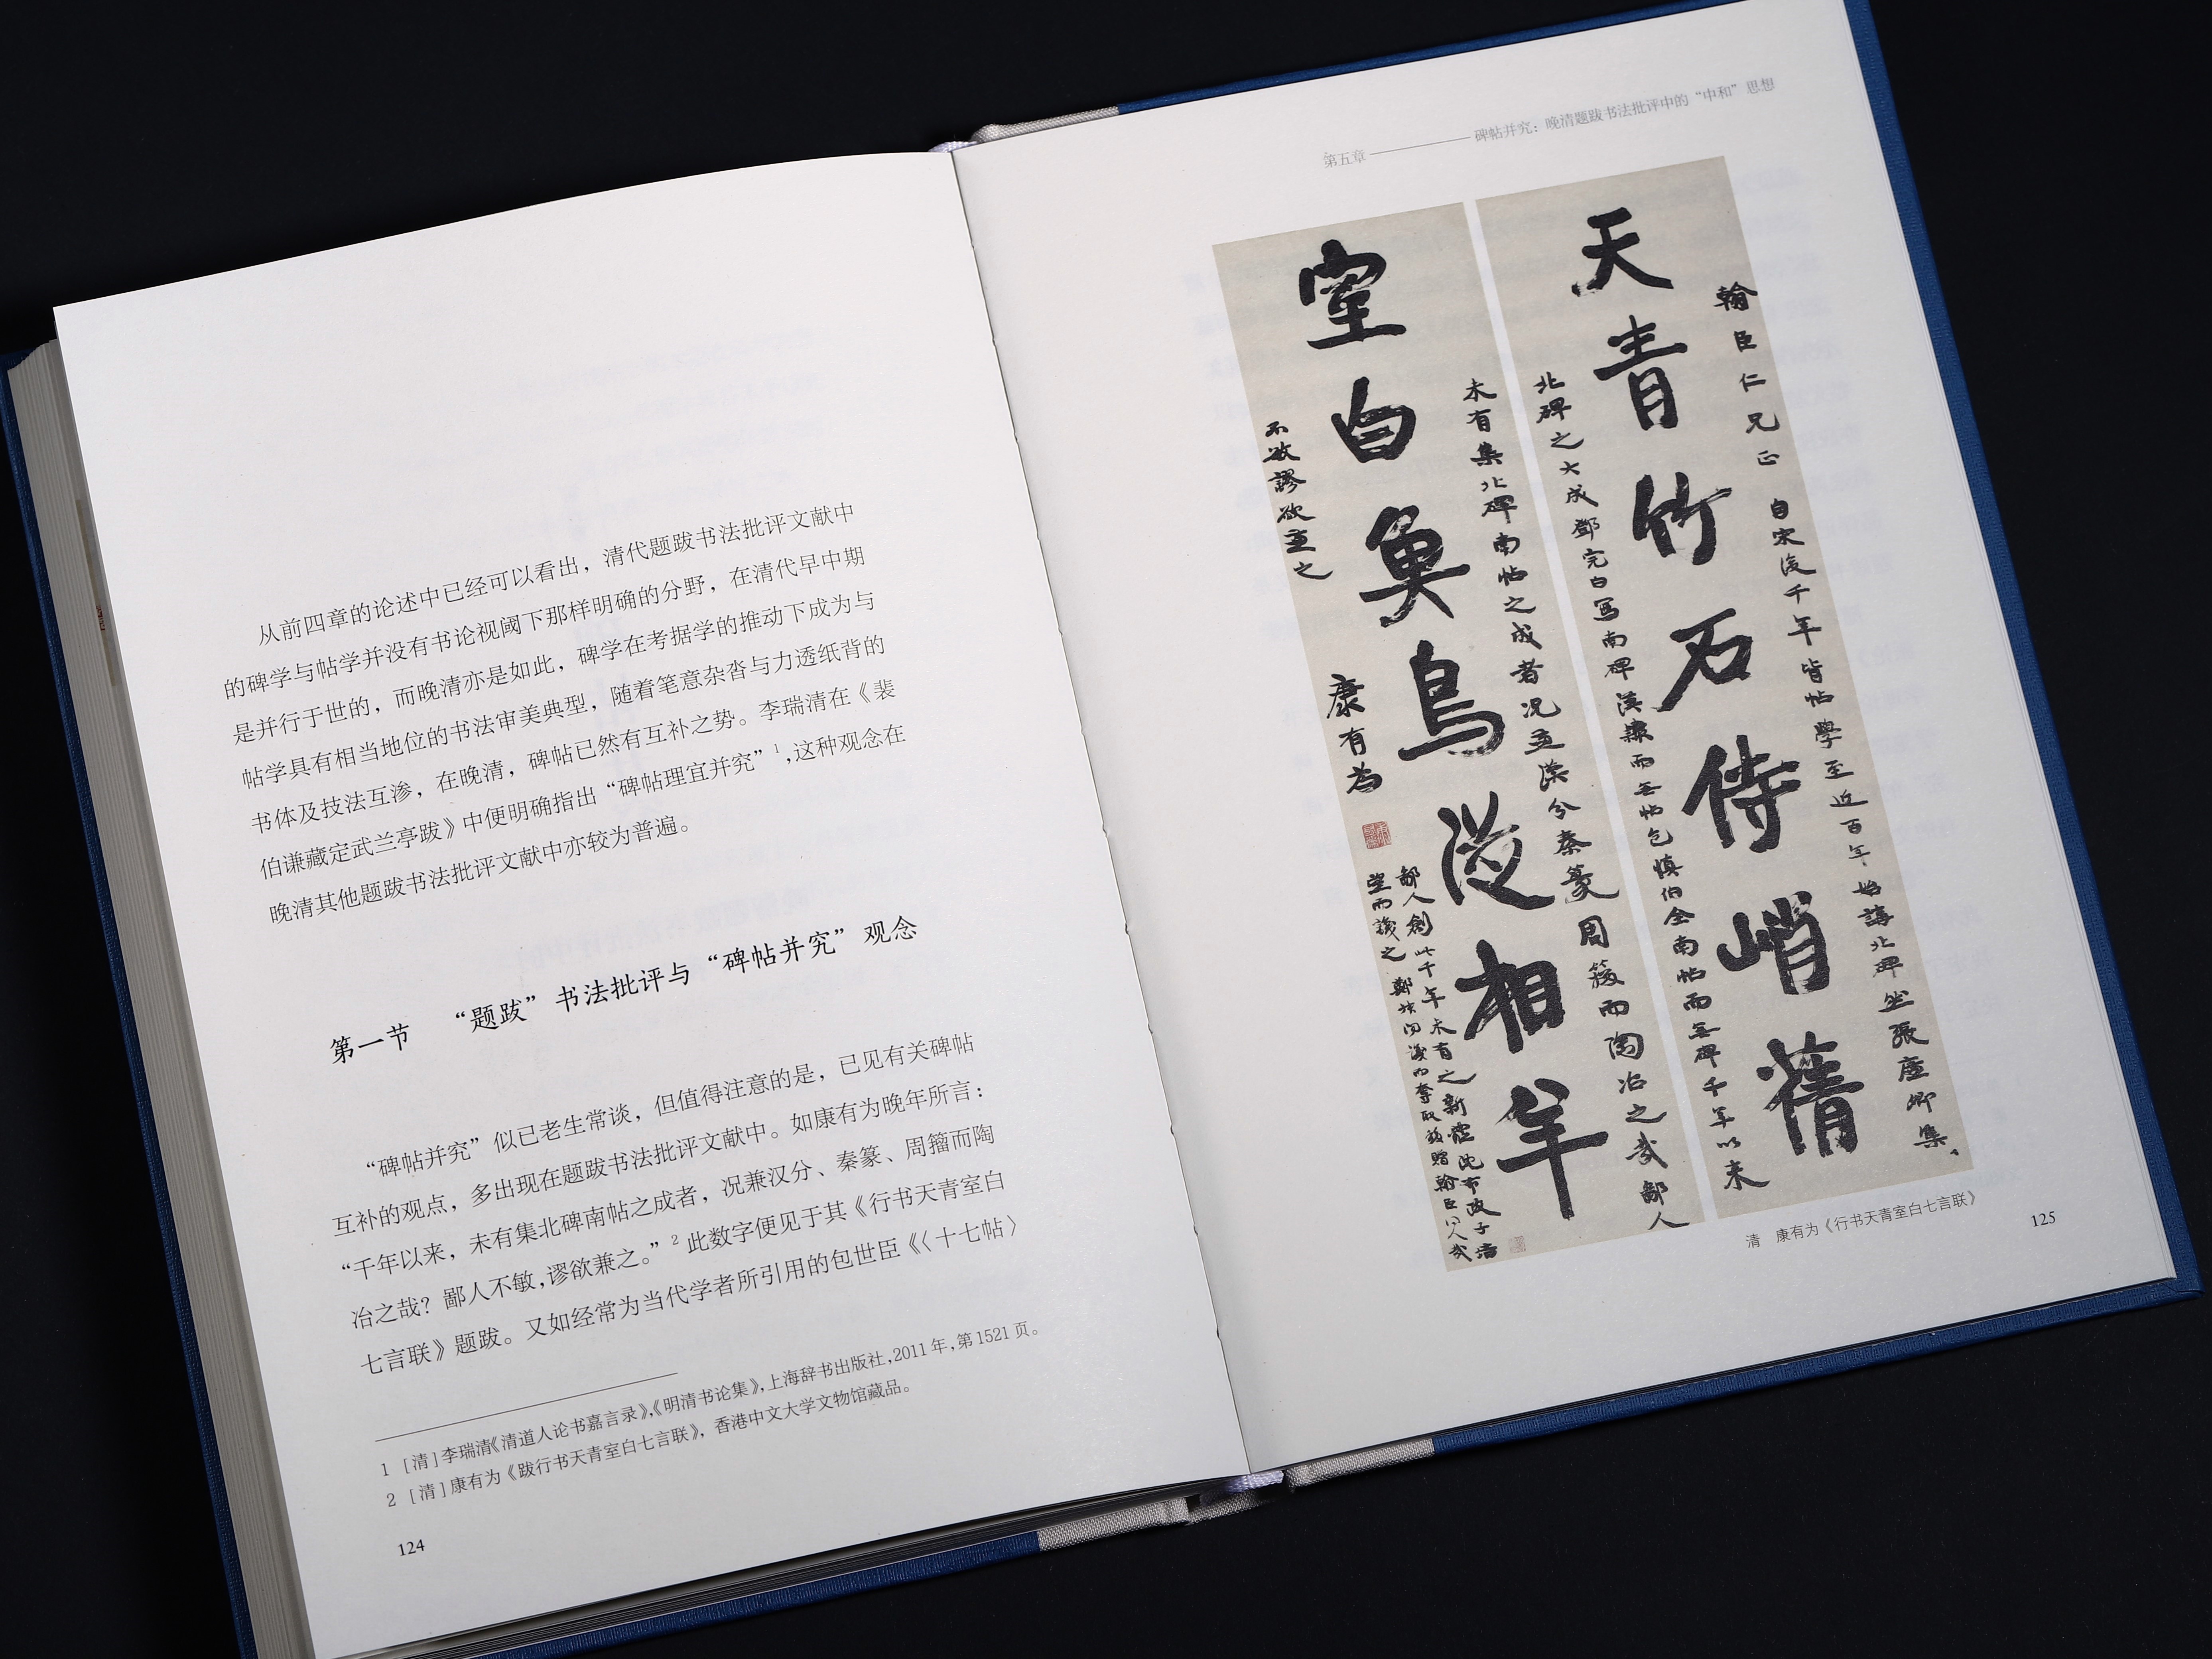 从前四章的论述中已经可以看出，清代题跋书法批评文献中
的碑学与帖学并没有书论视阈下那样明确的分野，在清代早中期
是并行于世的，而晚清亦是如此，碑学在考据学的推动下成为与
帖学具有相当地位的书法审美典型，随着笔意杂沓与力透纸背的
书体及技法互渗，在晚清，碑帖已然有互补之势。李瑞清在《裴
伯谦藏定武兰亭跋》中便明确指出“碑帖理宜并究”1，这种观念在
晚清其他题跋书法批评文献中亦较为普遍。
第一节 “题跋”书法批评与“碑帖并究”观念
“碑帖并究”似已老生常谈，但值得注意的是，已见有关碑帖
互补的观点，多出现在题跋书法批评文献中。如康有为晚年所言：
“千年以来，未有集北碑南帖之成者，况兼汉分、秦篆、周籀而陶
冶之哉？鄙人不敏，谬欲兼之。”2 此数字便见于其《行书天青室白
七言联》题跋。又如经常为当代学者所引用的包世臣《〈十七帖〉
1 ［清］李瑞清《清道人论书嘉言录》，《明清书论集》，上海辞书出版社，2011年，第1521页。
2 ［清］康有为《跋行书天青室白七言联》，香港中文大学文物馆藏品。
124
第五章 碑帖并究：晚清题跋书法批评中的“中和”思想
翰臣仁兄正 自宋後千年皆帖學至近百年始講北碑然張廉卿集
天青竹石待峭蒨
北碑之大成鄧完白寫南碑漢隸而無帖包慎伯全南帖而無碑千年以来
未有集北碑南帖之成者况兼漢分秦篆周籀而陶冶之哉鄙人
室白魚鳥從相羊
不敏謬欲兼之 康有為
鄙人創此千年未有之新體沈布政子培
清 康有为《行书天青室白七言联》
125